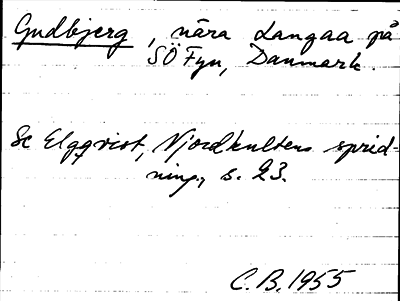 Gudbjerg, nära Langaa på
SÖ Fyn, Danmark.
Se Elgqvist, Njordkultens sprid-
ning, s. 23.
C.B. 1955